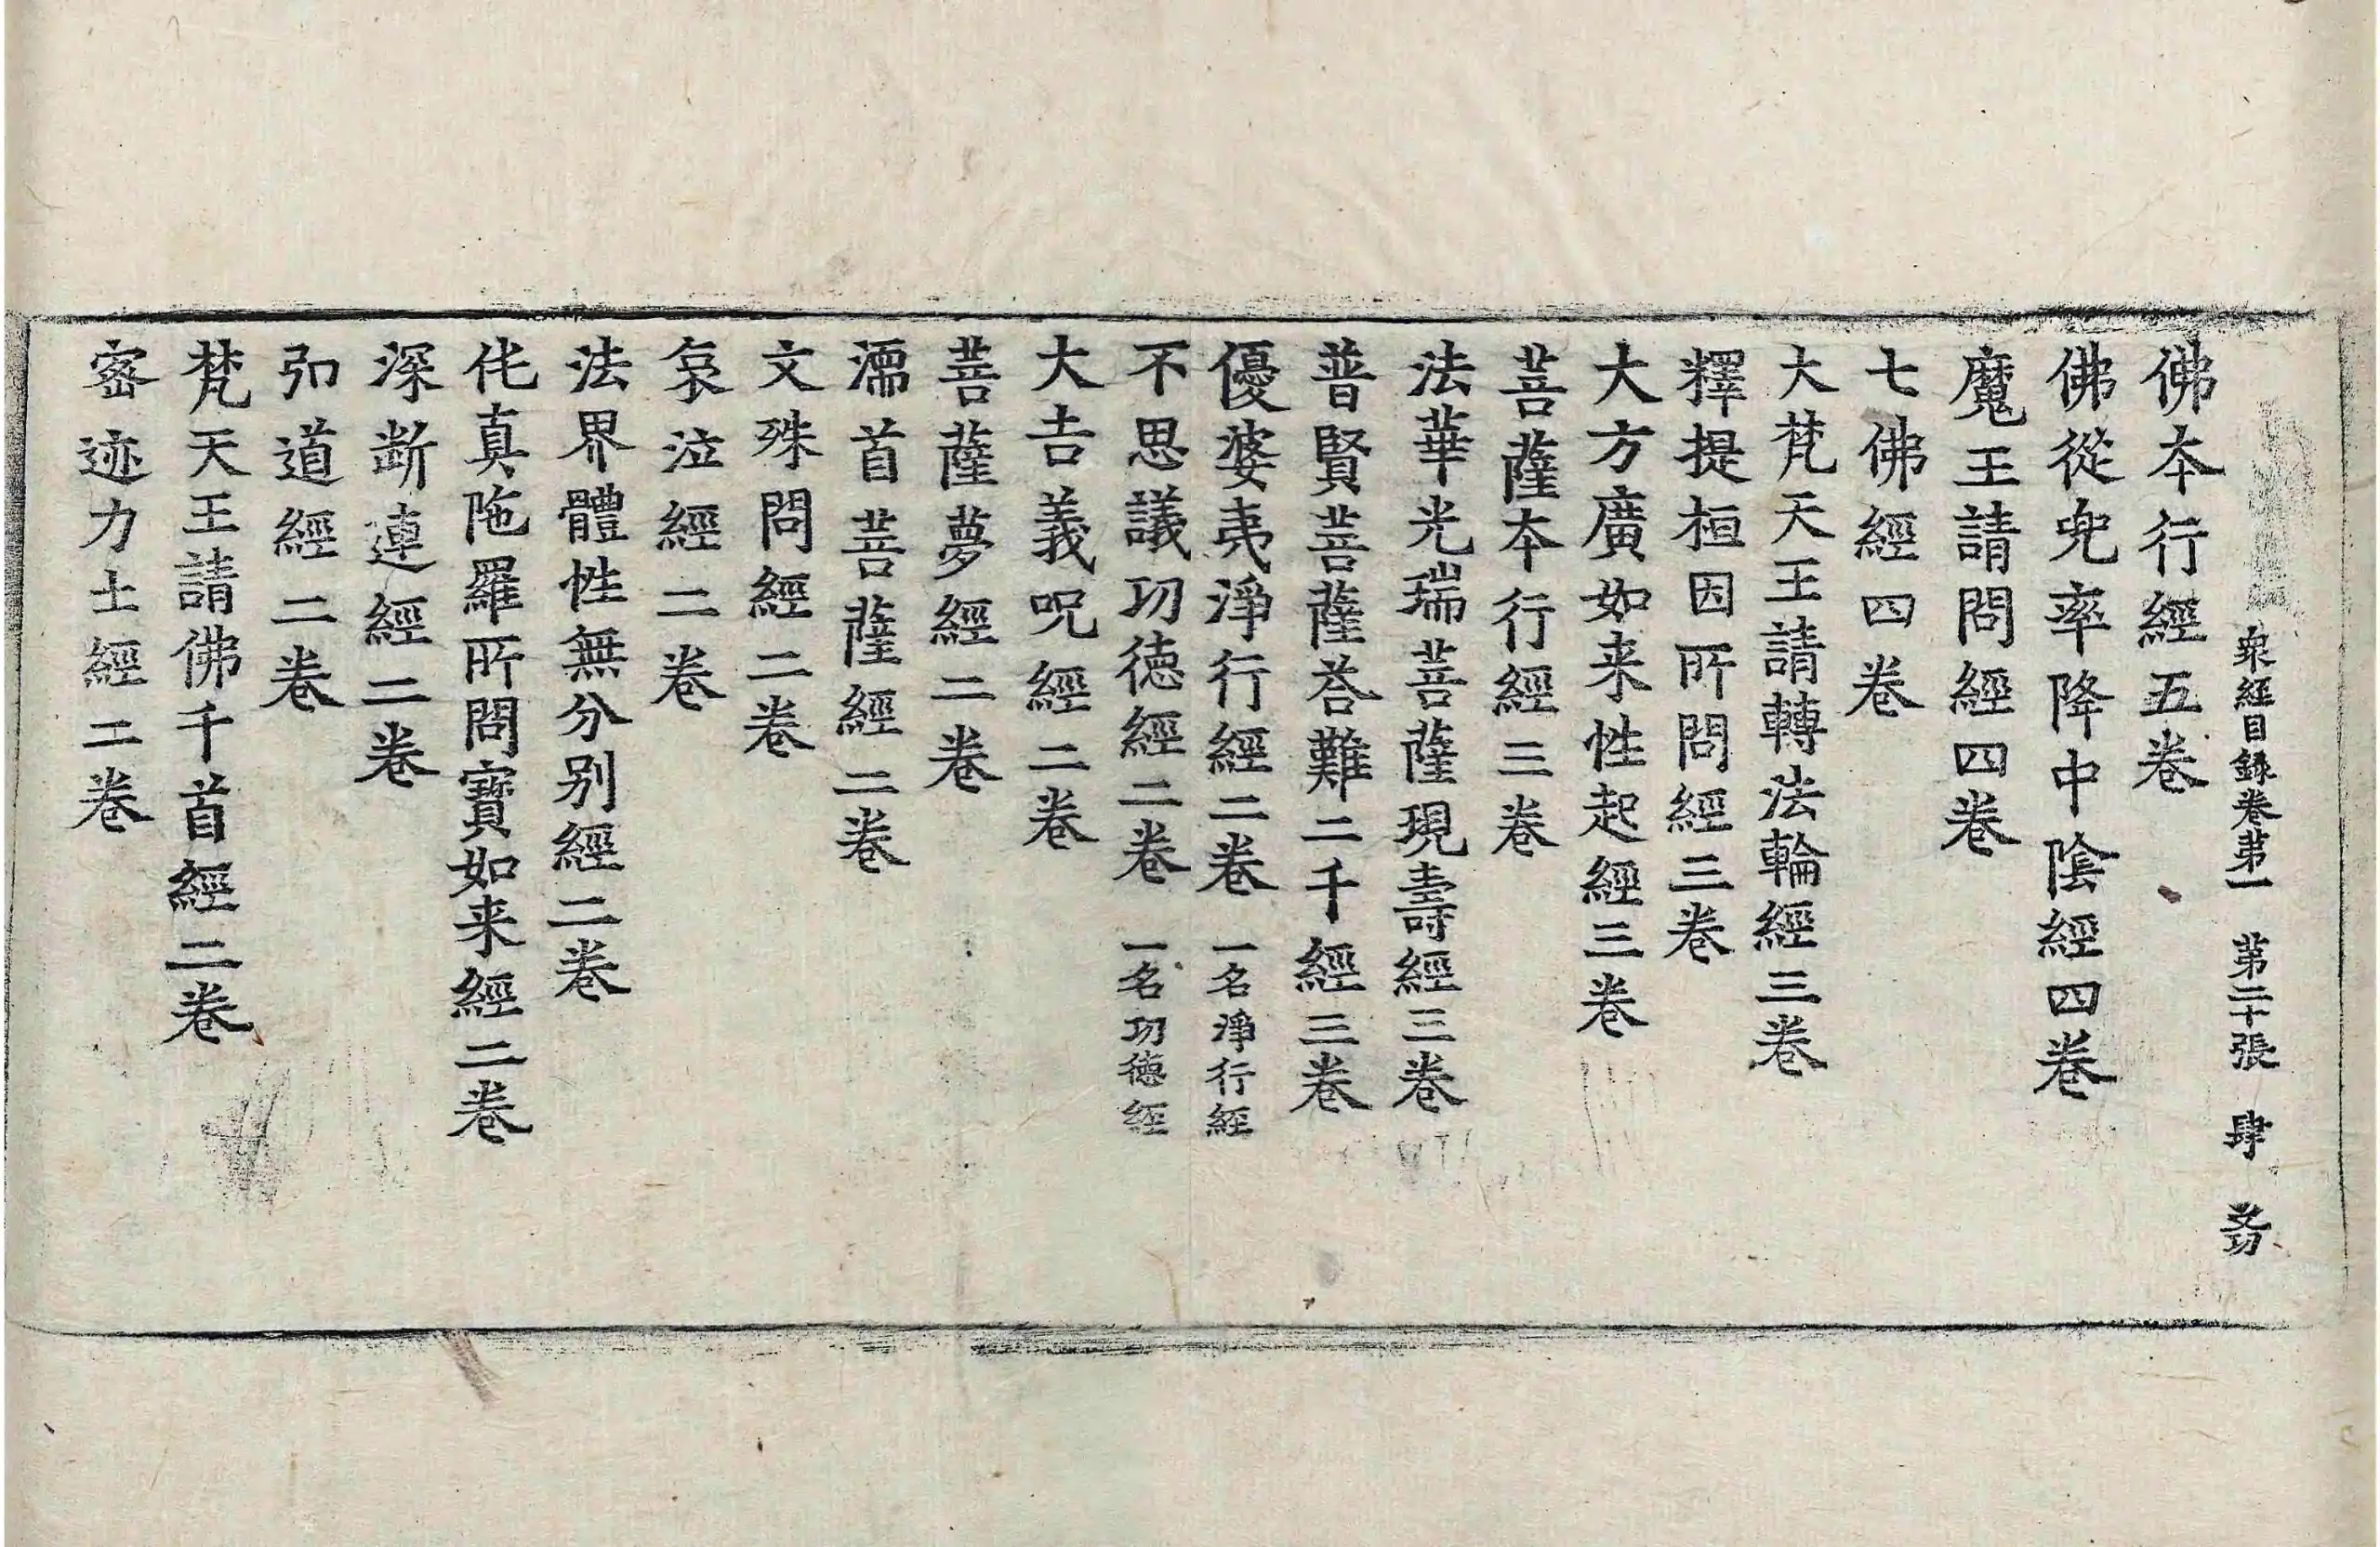 衆經目録卷苐一 苐二十張 肆
佛本行經五卷
佛從兜率降中隂經四卷
魔王請問經四卷
七佛經四卷
大梵天王請轉法輪經三卷
釋提桓因所問經三卷
大方廣如来性起經三卷
菩薩本行經三卷
法華光瑞菩薩現壽經三卷
普賢菩薩荅難二千經三卷
優婆夷淨行經二卷 一名淨行經
不思議功徳經二卷 一名功徳經
大吉義呪經二卷
菩薩夢經二卷
濡首菩薩經二卷
文殊問經二卷
哀泣經二卷
法界體性無分别經二卷
伅真陁羅所問寶如来經二卷
深断連經二卷
弘道經二卷
梵天王請佛千首經二卷
密迹力士經二卷